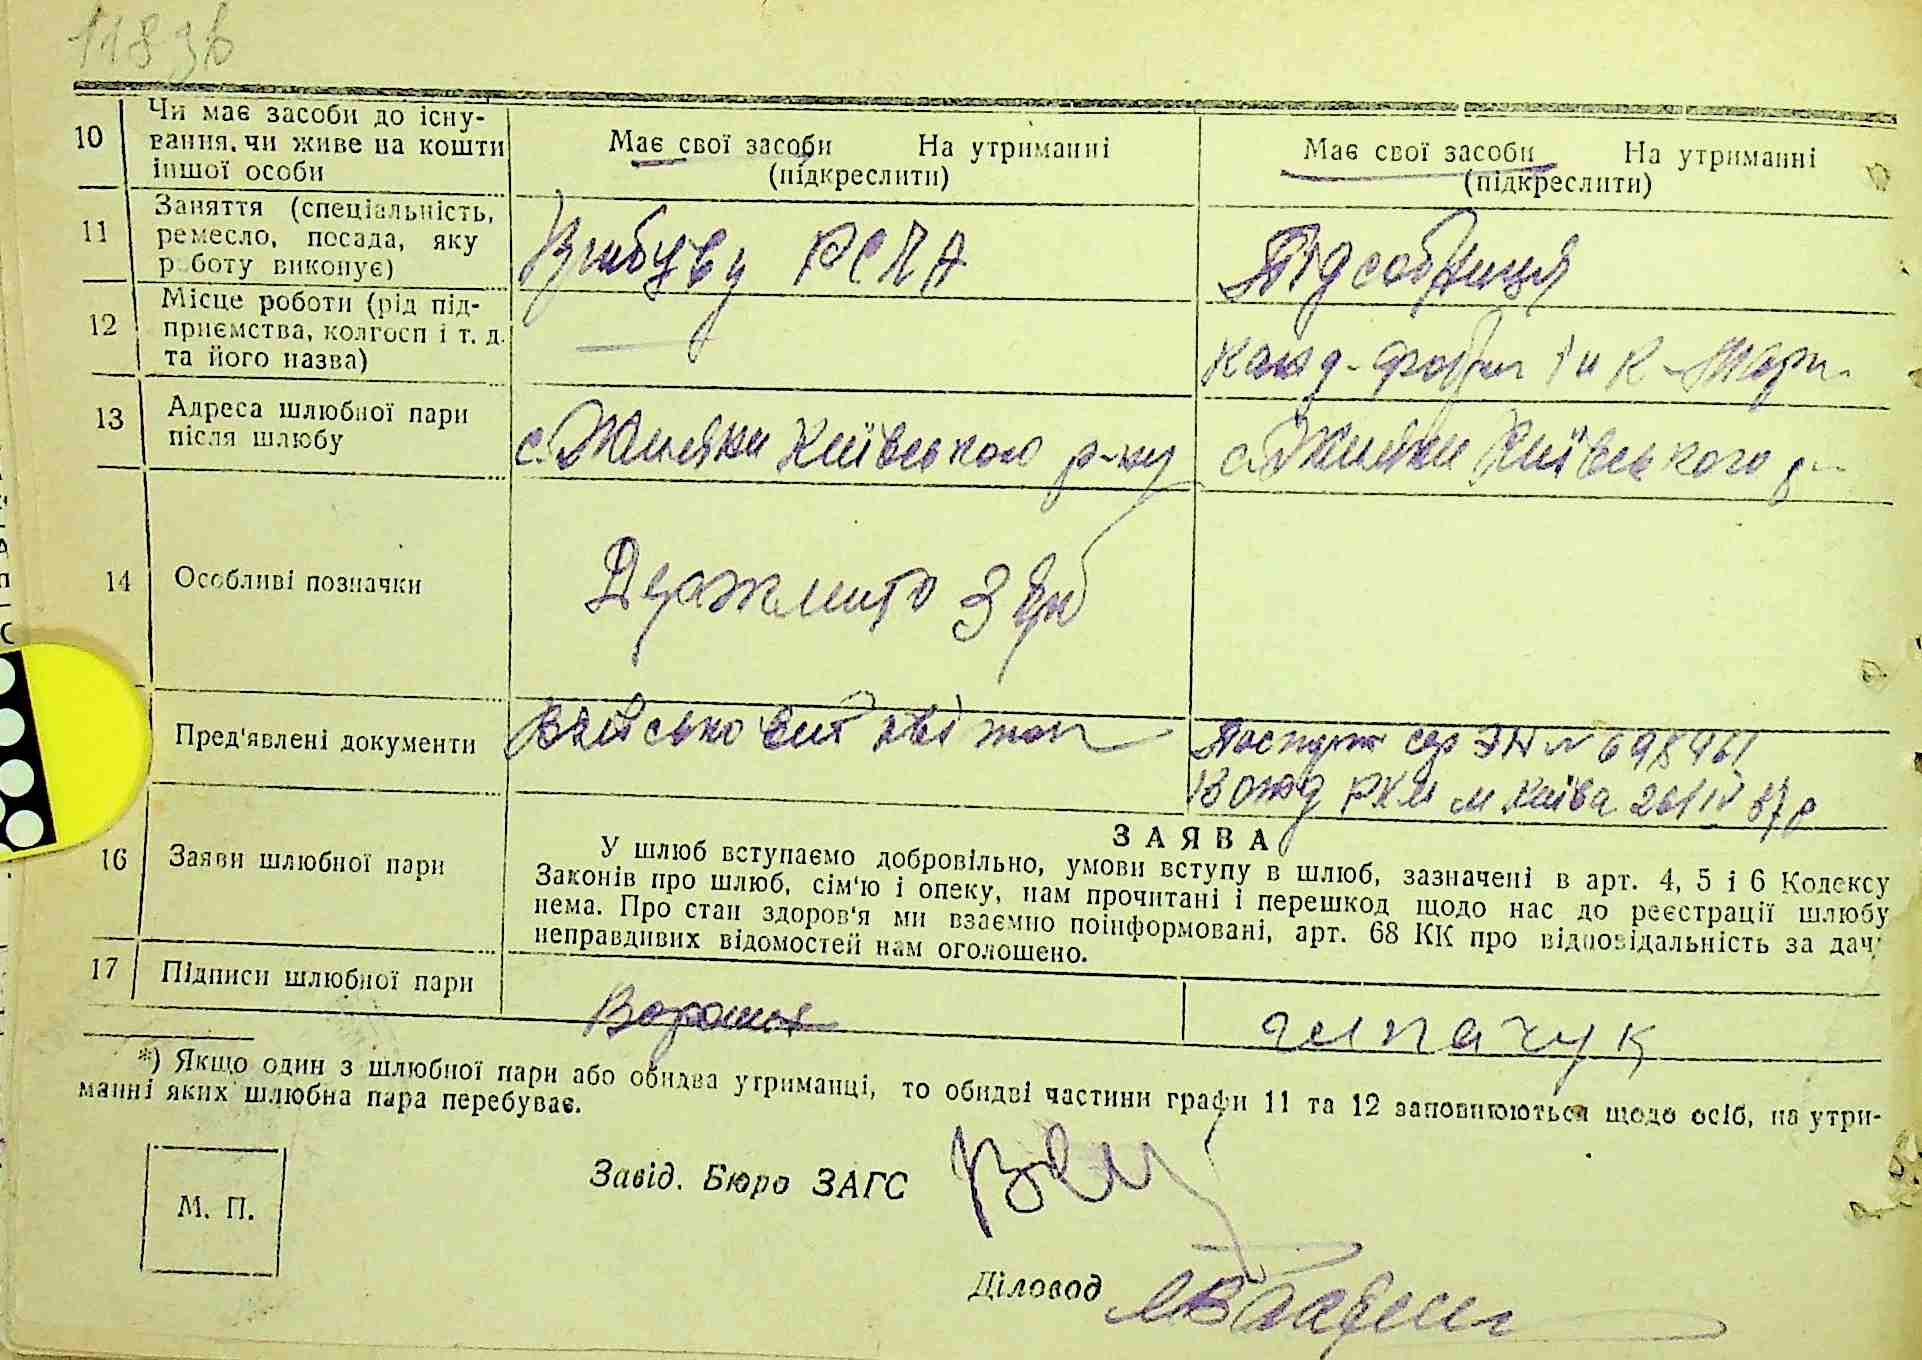 118 зв
10
Чи має засоби до існу-
вання, чи живе на кошти
іншої особи
Має свої засоби На утриманні
(підкреслити)
Має свої засоби На утриманні
(підкреслити)
11
Заняття (спеціальність,
ремесло, посада, яку
роботу виконує)
Вибув у РСЧА
Підсобниця
12
Місце роботи (рід під-
приємства, колгосп і т. д.
та його назва)
—
Конд-фабр
13
Адреса шлюбної пари
після шлюбу
с. Жиляни Київського р-ну
с. Жиляни Київського р-
14
Особливі позначки
Держмито 3 крб
Пред'явлені документи
Військовий квіток
Паспорт сер ЭН № 698961
13 отд РКМ м Київа 26/IV 37 р
16
Заяви шлюбної пари
ЗАЯВА
У шлюб вступаємо добровільно, умови вступу в шлюб, зазначені в арт. 4, 5 і 6 Кодексу
Законів про шлюб, сім'ю і опеку, нам прочитані і перешкод щодо нас до реєстрації шлюбу
нема. Про стан здоров'я ми взаємно поінформовані, арт. 68 КК про відповідальність за дач
неправдивих відомостей нам оголошено.
17
Підписи шлюбної пари
*) Якщо один з шлюбної пари або обидва утриманці, то обидві частини графи 11 та 12 заповнюються щодо осіб, на утри-
манні яких шлюбна пара перебуває.
М. П.
Завід. Бюро ЗАГС
Діловод